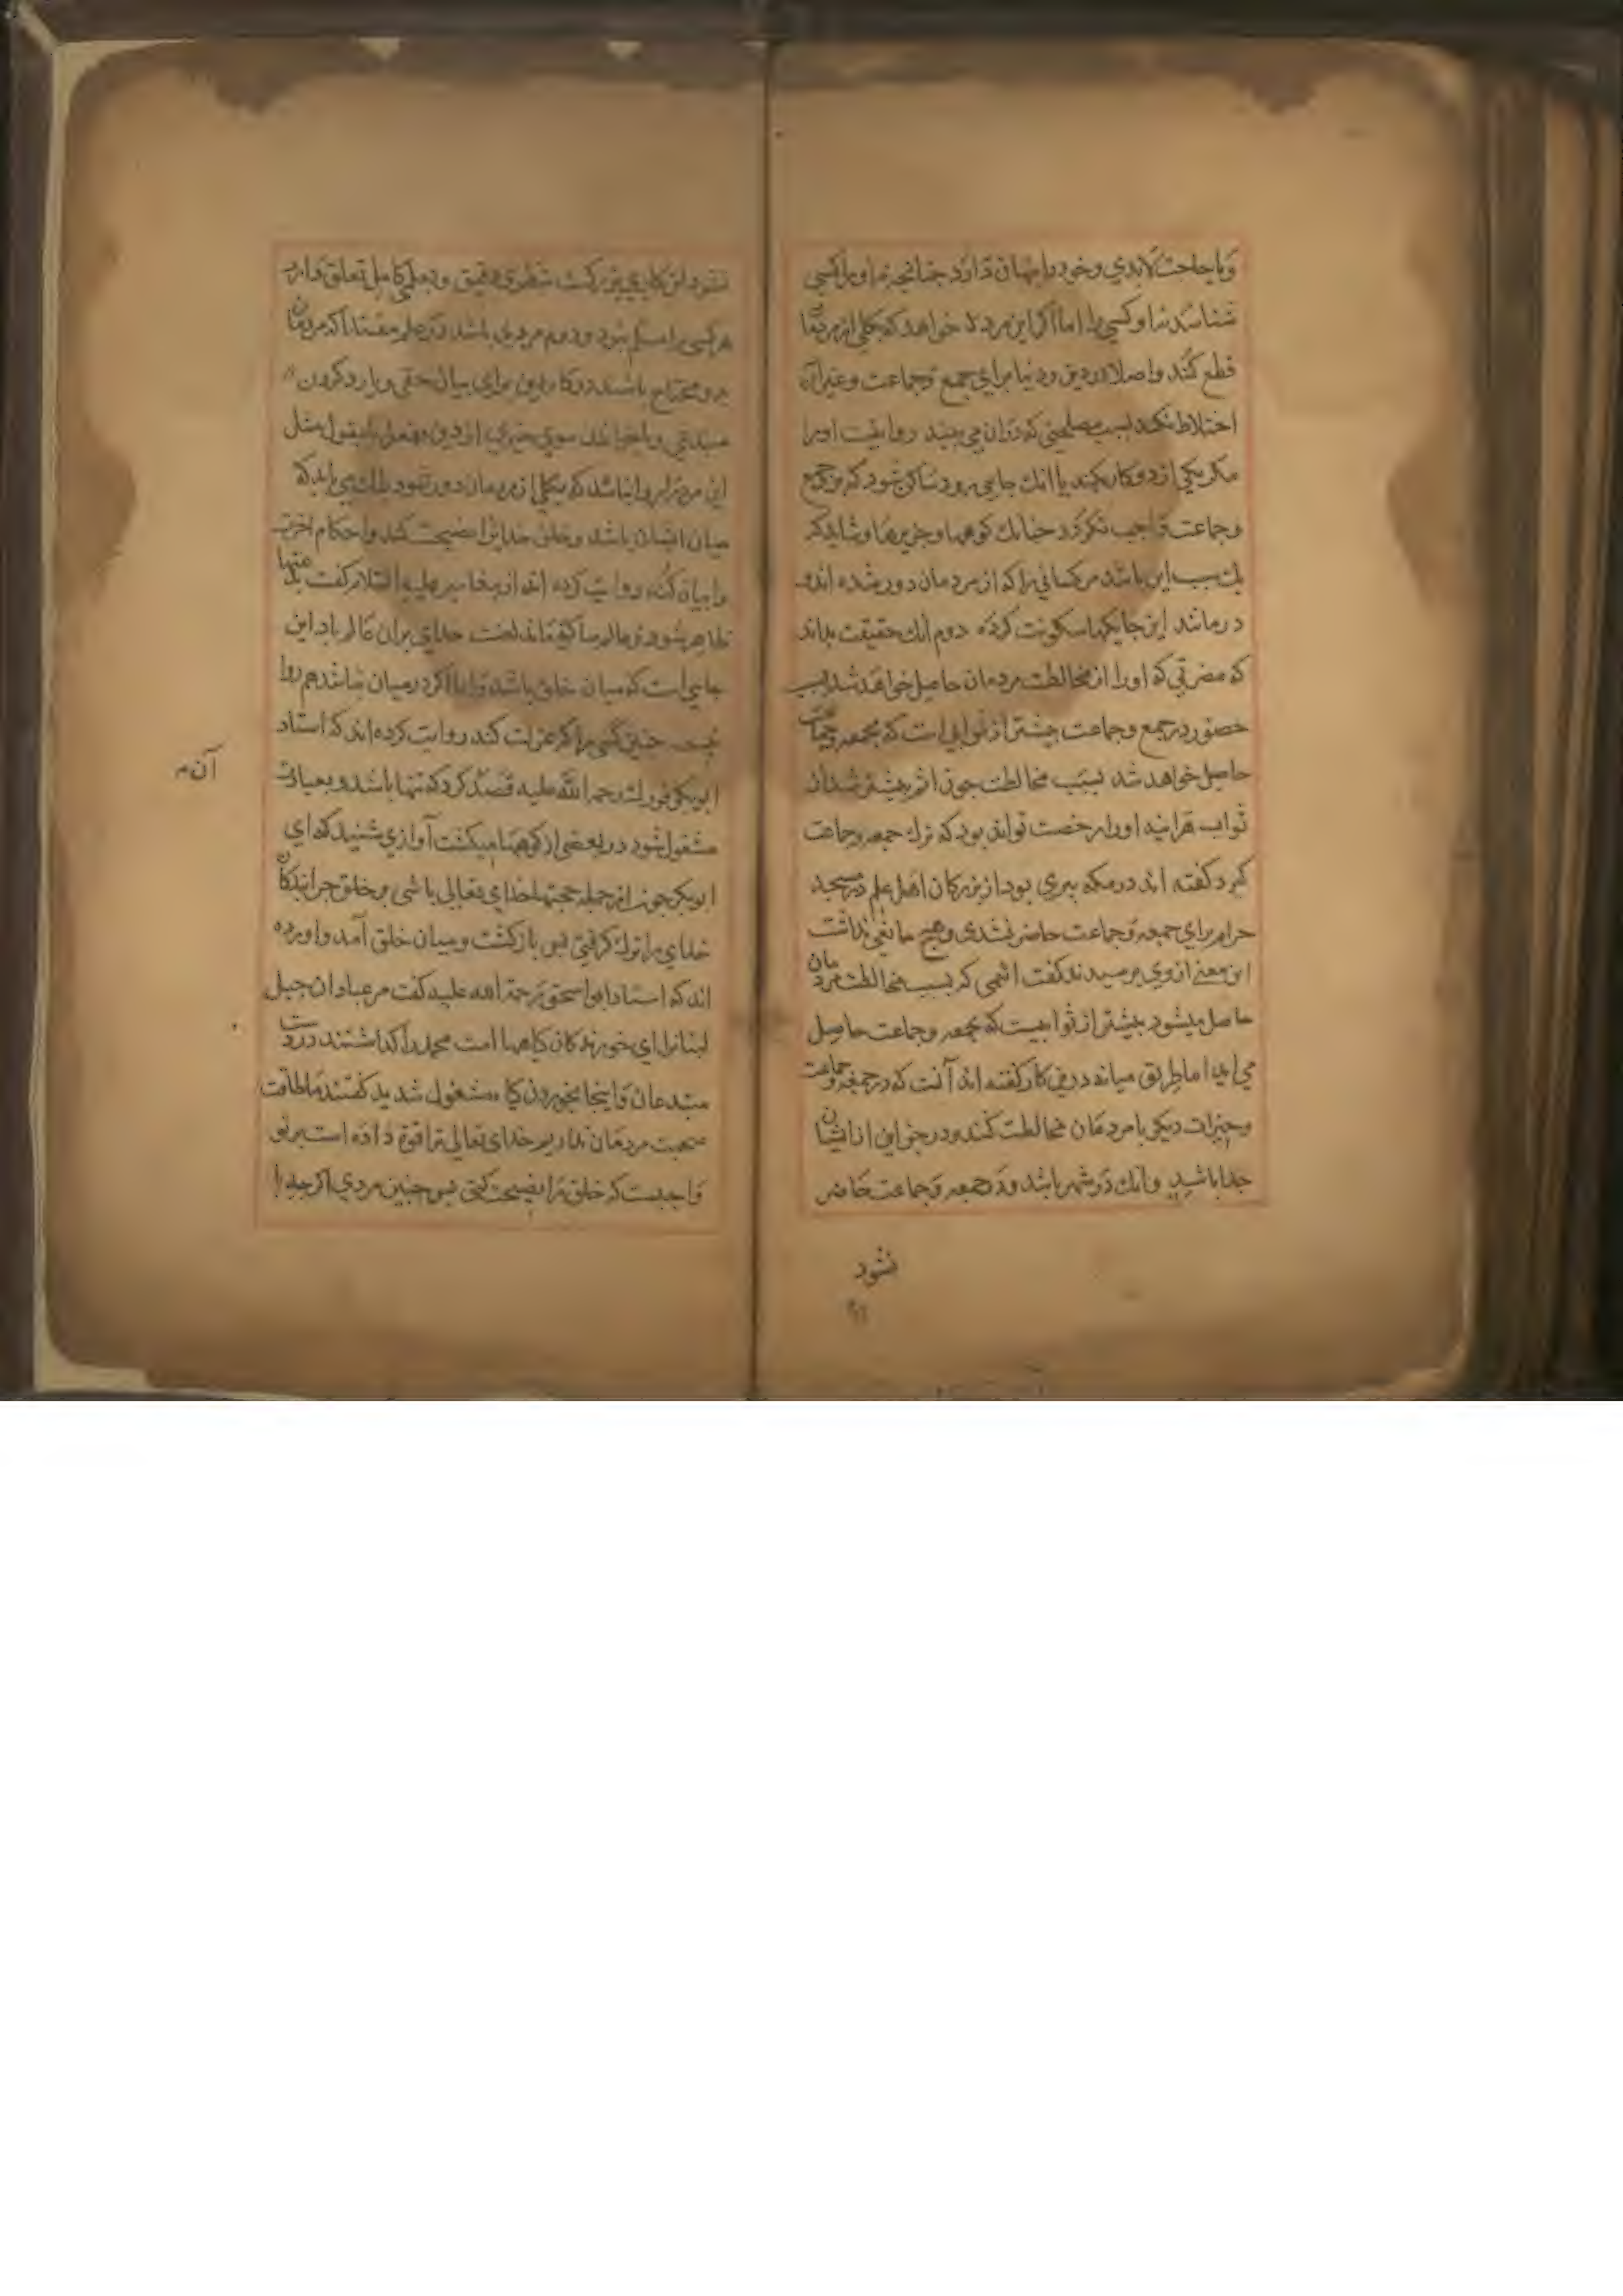 و یا حاجت لابدی و خود را پنهان دارد چنانچه نه او را کسی
شناسد نه او کسی را اما اگر این مرد خواهد که بکلی از مردمان
قطع کند و اصلا در دین و دنیا برای جمع و جماعت و غیر آن
اختلاط نکند بسبب مصلحتی که در آن می بیند روا نیست او را
مکر یکی از دو کار بکند یا انک جایی برود و ساکن شود که بر وی جمع
و جماعت واجب نکردد چنانک کوهها و جزیرها و شاید که
یک سبب این باشد مر کسانی را که از مردمان دور شده اند و
در مانند این جایکها سکونت کرده دوم انک حقیقت بداند
که مضرتی که او را از مخالطت مردمان حاصل خواهد شد بسبب
حضور در جمع و جماعت بیشتر از ثوابی است که بجمعه و جماعت
حاصل خواهد شد بسبب مخالطت چون اثم بیشتر شد از
ثواب هراینه او را رخصت توانی بود که ترک جمعه و جماعت
کیرد کفته اند در مکه پیری بود از بزرکان اهل علم در مسجد
حرام برای جمعه و جماعت حاضر نشدی و هیچ مانعی نداشت
این معنی از وی پرسیدند کفت اثمی که بسبب مخالطت مردمان
حاصل میشود بیشتر از ثوابیست که بجمعه و جماعت حاصل
می اید اما طریق میانه درین کار کفته اند آنست که در جمعه و جماعت
و خیرات دیکر با مردمان مخالطت کنند و در جز این از ایشان
جدا باشند وانک در شهر باشد و در جمعه و جماعت حاضر
نشود
نشود این کاری بزرکست بنظری دقیق و بعلمی کامل تعلق دارد
هر کسی را مسلم نبود و دوم مردی باشد در علم مقتدا که مردمان
برو محتاج باشند در کار دین برای بیان حق و یا رد کردن
مبتدعی و یا خواندن سوی خیری از دین بفعل یا بقول مثل
این مرد را روا نباشد که بکلی از مردمان دور شود بلک می باید که
میان ایشان باشد و خلق خدایرا نصیحت کند و احکام آخرت
را بیان کند روایت کرده اند از پیغامبر علیه السلام کفت بدعتها
ظاهر شود و عالم ساکت ماند لعنت خدای بران عالم باد این
جایی است که میان خلق باشد و اما اکر در میان نباشد هم روا
نیست چنین کسی را که عزلت کند روایت کرده اند که استاد
آن م
ابوبکر فورک رحمه الله علیه قصد کرد که تنها باشد و بعبادت
مشغول شود در بعضی از کوهها میکشت آوازی شنید که ای
ابوبکر چون از جمله حجتها خدای تعالی باشی بر خلق چرا بندکان
خدای را ترک کرفتی پس بازکشت و میان خلق آمد و اورده
اند که استاد ابواسحق رحمة الله علیه کفت مر عبادان جبل
لبنانرا ای خورندکان کیاهها امت محمد را کذاشتند در دست
مبتدعان و اینجا بخوردن کیاه مشغول شدید کفتند ما طاقت
صحبت مردمان نداریم خدای تعالی ترا قوة داده است بر تو
واجبست که خلق را نصیحت کنی پس چنین مردی اکر چه با